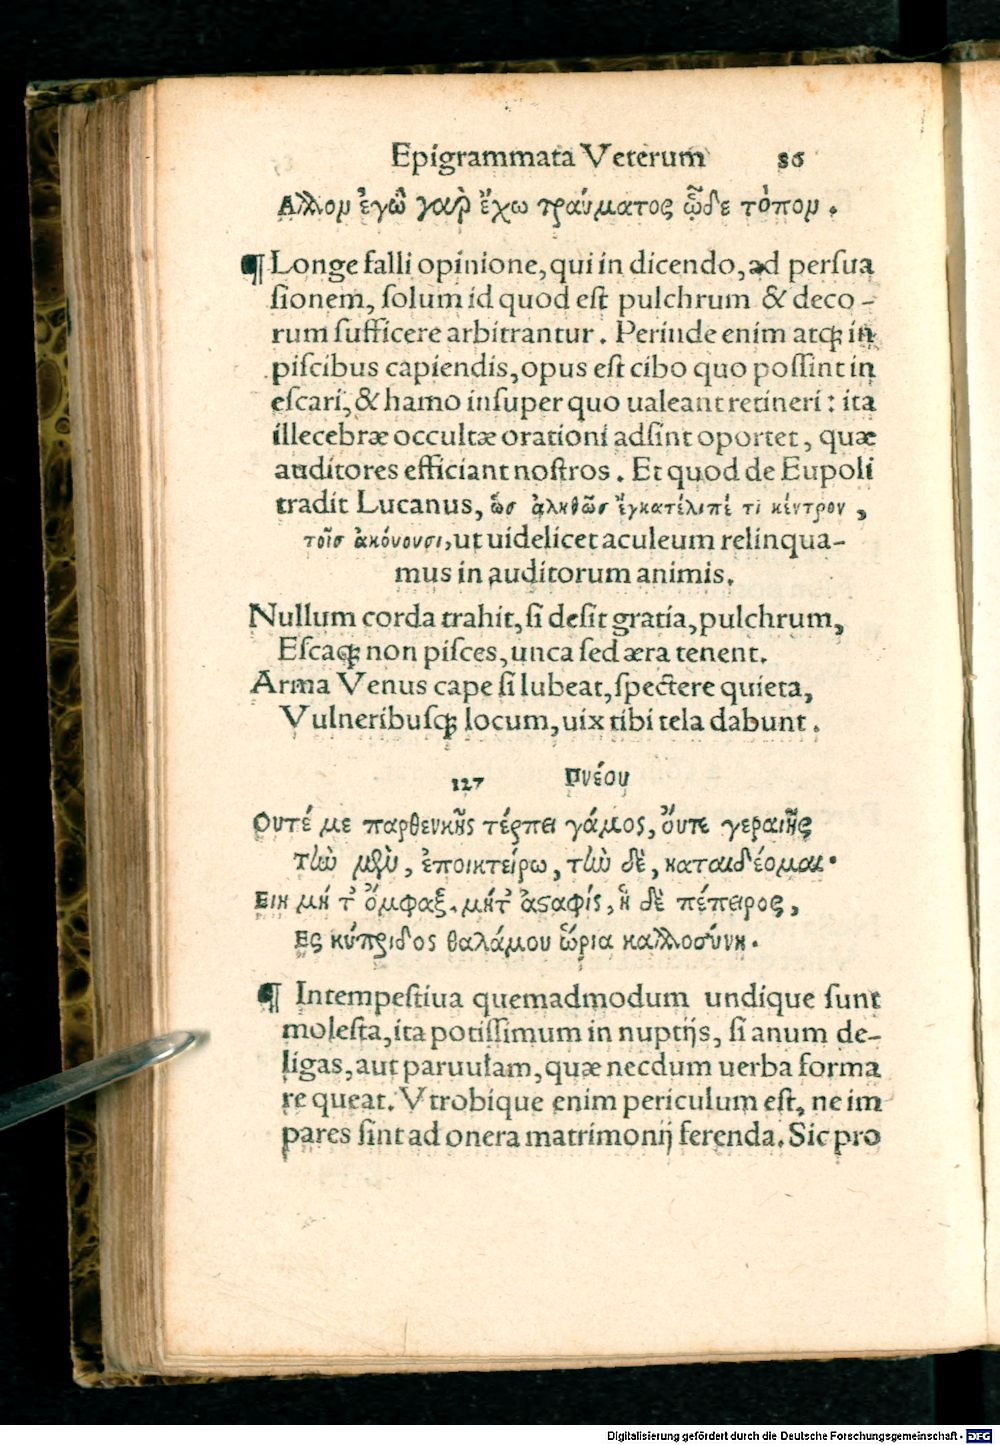 Epigrammata Veterum 86
Ἄλλον ἐγὼ γὰρ ἔχω τραύματος ὧδε τόπον.
¶ Longe falli opinione, qui in dicendo, ad persua
sionem, solum id quod est pulchrum & deco-
rum sufficere arbitrantur. Perinde enim atq; in
piscibus capiendis, opus est cibo quo possint in
escari, & hamo insuper quo ualeant retineri: ita
illecebræ occultæ orationi adsint oportet, quæ
auditores efficiant nostros. Et quod de Eupoli
tradit Lucanus, ὡσ ἀληθῶσ ἔγκατέλιπέ τι κέντρον,
τοῖσ ἀκόυουσι, ut uidelicet aculeum relinqua-
mus in auditorum animis.
Nullum corda trahit, si desit gratia, pulchrum,
Escaq; non pisces, unca sed æra tenent.
Arma Venus cape si lubeat, spectere quieta,
Vulneribusq; locum, uix tibi tela dabunt.
127 Ονέσου
Ουτέ με παρθενικῆς τέρπει γάμος, ὄυτε γεραιῆς
τὴν μὲν, ἐποικτείρω, τὴν δὲ, καταιδέομαι.
Ειη μή τ᾽ ὄμφαξ. μήτ᾽ ἀσαφίς, ἡ δὲ πέπειρος,
Ες κύπριδος θαλάμου ὥρια καλλοσύνη.
¶ Intempestiua quemadmodum undique sunt
molesta, ita potissimum in nuptijs, si anum de-
ligas, aut paruulam, quæ necdum uerba forma
re queat. Vtrobique enim periculum est, ne im
pares sint ad onera matrimonij ferenda. Sic pro
Digitalisierung gefördert durch die Deutsche Forschungsgemeinschaft - DFG